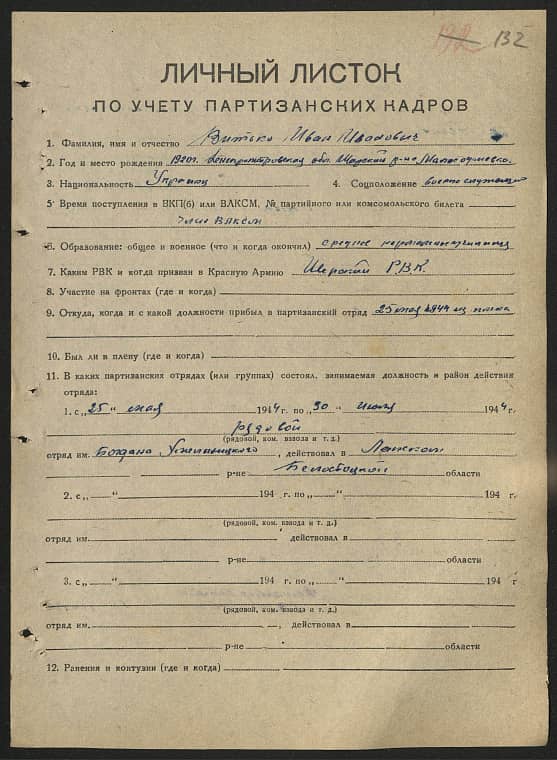 192 132
ЛИЧНЫЙ ЛИСТОК
ПО УЧЕТУ ПАРТИЗАНСКИХ КАДРОВ
1. Фамилия, имя и отчество Витько Иван Иванович
2. Год и место рождения 1920г. Днепропетровская обл. р-не
3. Национальность Украинец 4. Соцположение военнослужащий
5 Время поступления в ВКП(б) или ВЛКСМ, № партийного или комсомольского билета
Член ВЛКСМ
6. Образование: общее и военное (что и когда окончил) среднее
7. Каким РВК и когда призван в Красную Армию Р.В.К.
8. Участие на фронтах (где и когда)
9. Откуда, когда и с какой должности прибыл в партизанский отряд 25 мая 1944 из плена
10. Был ли в плену (где и когда)
11. В каких партизанских отрядах (или группах) состоял, занимаемая должность и район действия
отряда:
1. с „25“ мая 1944 г. по „30“ июля 1944 г.
рядовой
(рядовой, ком. взвода и т. д.)
отряд им. Богдана Хмельницкого, действовал в
р-не Белостоцкой области
2. с „ “ 194 г. по „ “ 194 г.
(рядовой, ком. взвода и т. д.)
отряд им. действовал в
р-не области
3. с „ “ 194 г. по „ “ 194 г
(рядовой, ком. взвода и т. д.)
отряд им. , действовал в
р-не области
12. Ранения и контузии (где и когда)